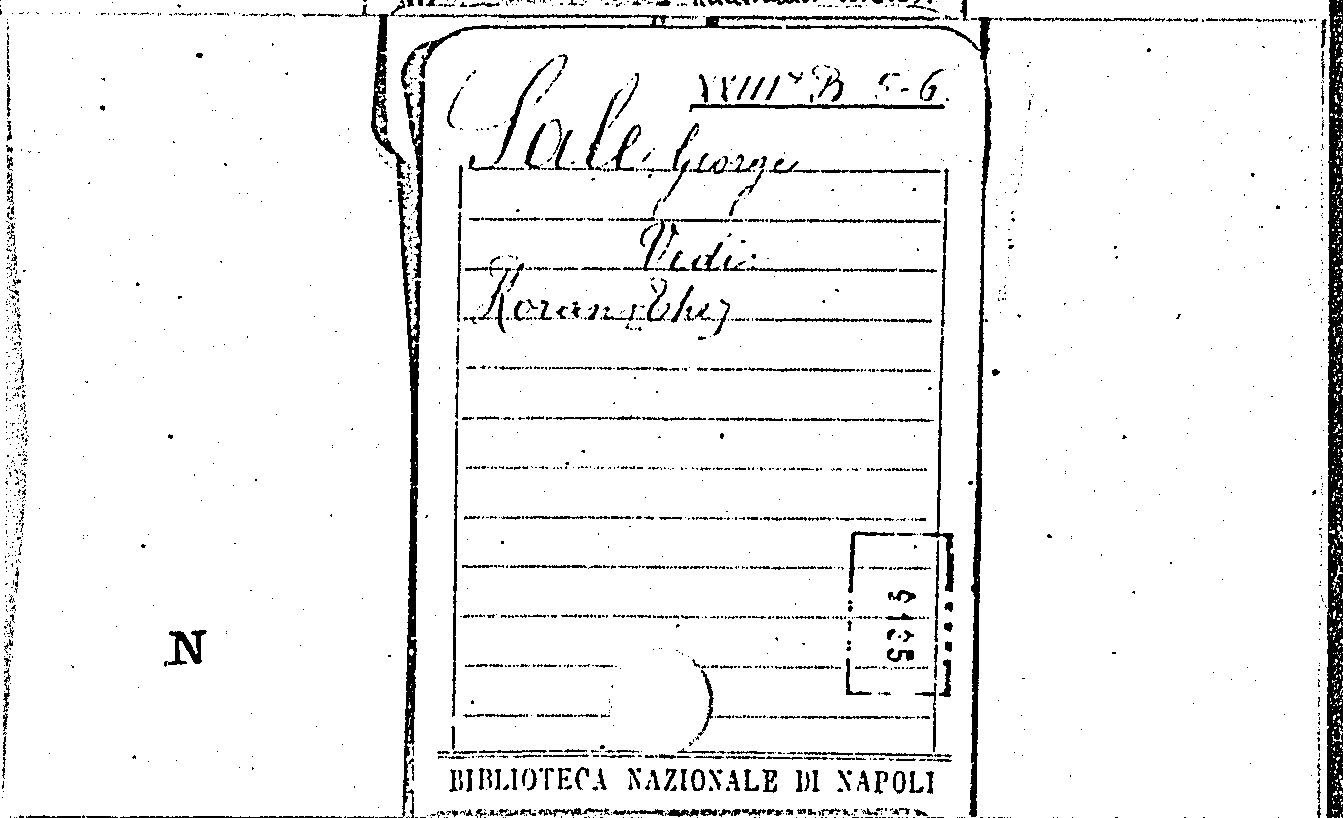 B 5-6
Sale, George
Vedi:
Koran (The)
N
BIBLIOTECA NAZIONALE DI NAPOLI